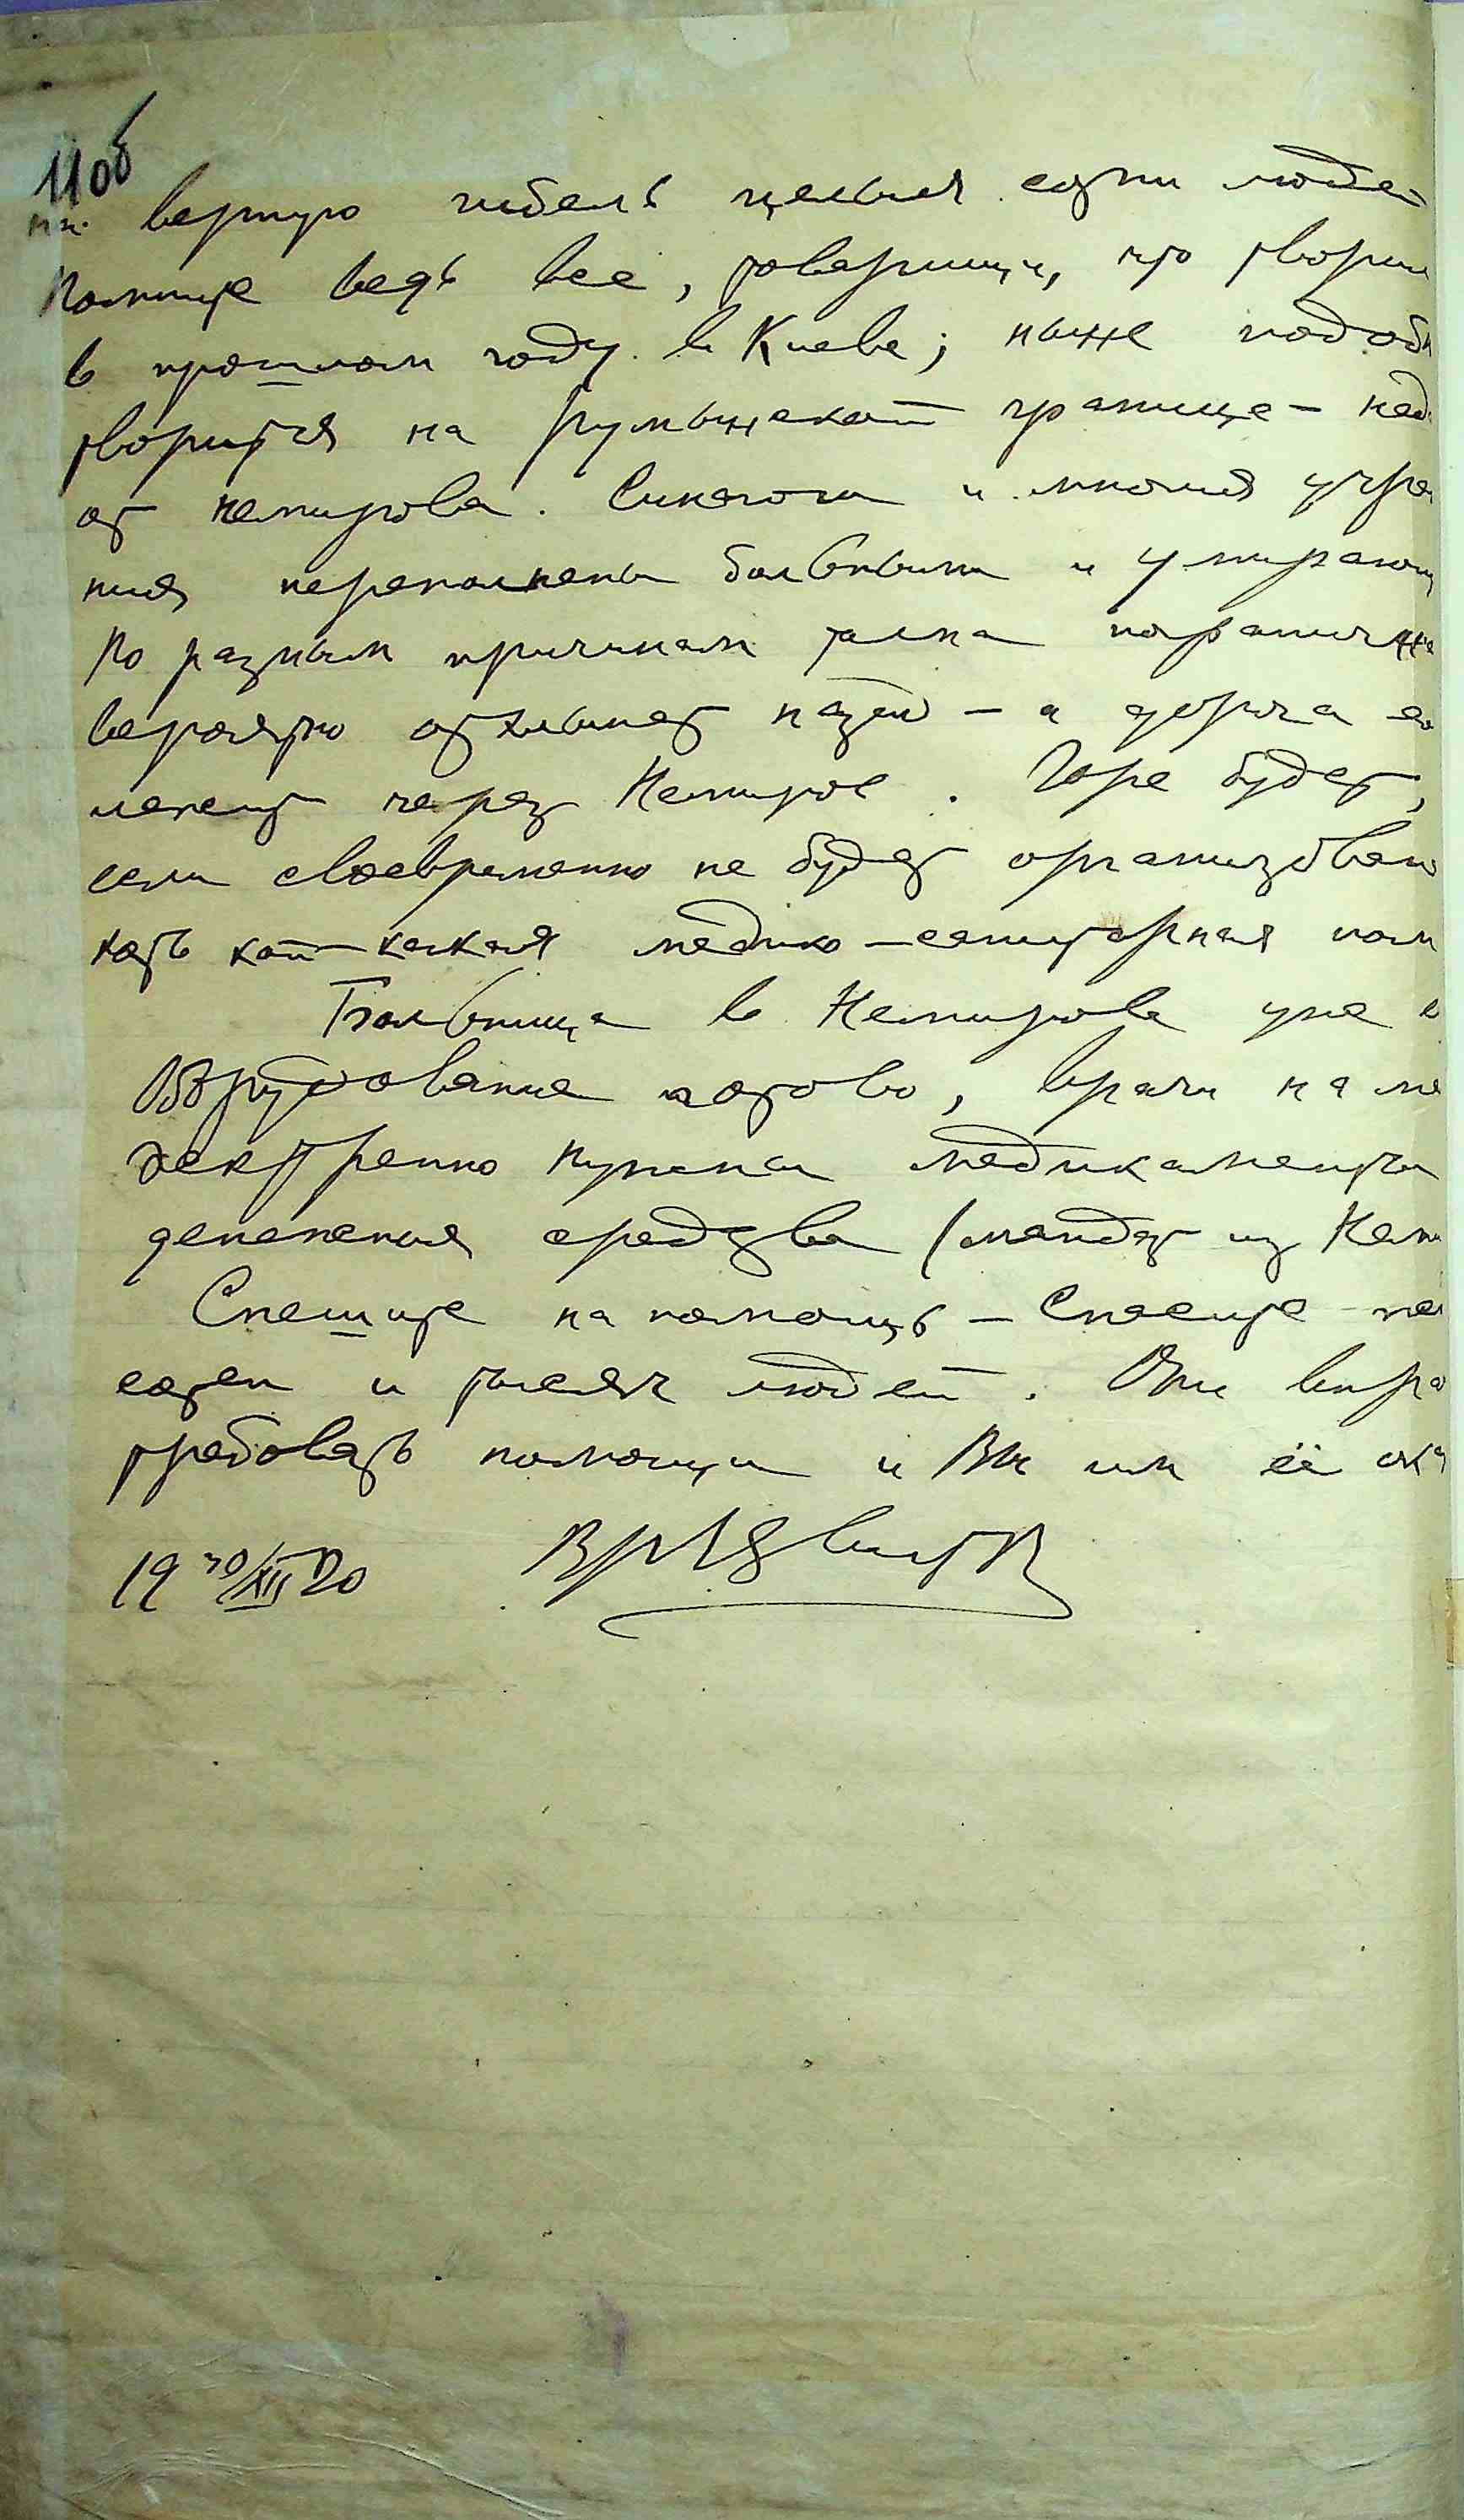 11об
на верную гибель целыя сотни людей
Помните ведь все, товарищи, что творил
в прошлом году в Киеве; ныне подобн
творится на румынской границе - нед
от Немирова. Синагоги и многия учре
ния переполнены больными и умирающ
По разным причинам толпа погранична
вероятно отхлынет назад - а дорога
лежит через Немиров. Горе будет,
если своевременно не будет организована
хоть кой-какая медико-санитарная пом
Больница в Немирове уже
Оборудование готово, врачи на ме
экстренно нужны медикаменты
денежныя средства (мандат из Неми
Спешите на помощь - Спасите
сотен и тысяч людей. Они впра
требовать помощи и Вы им её ока
19 30/XII 20